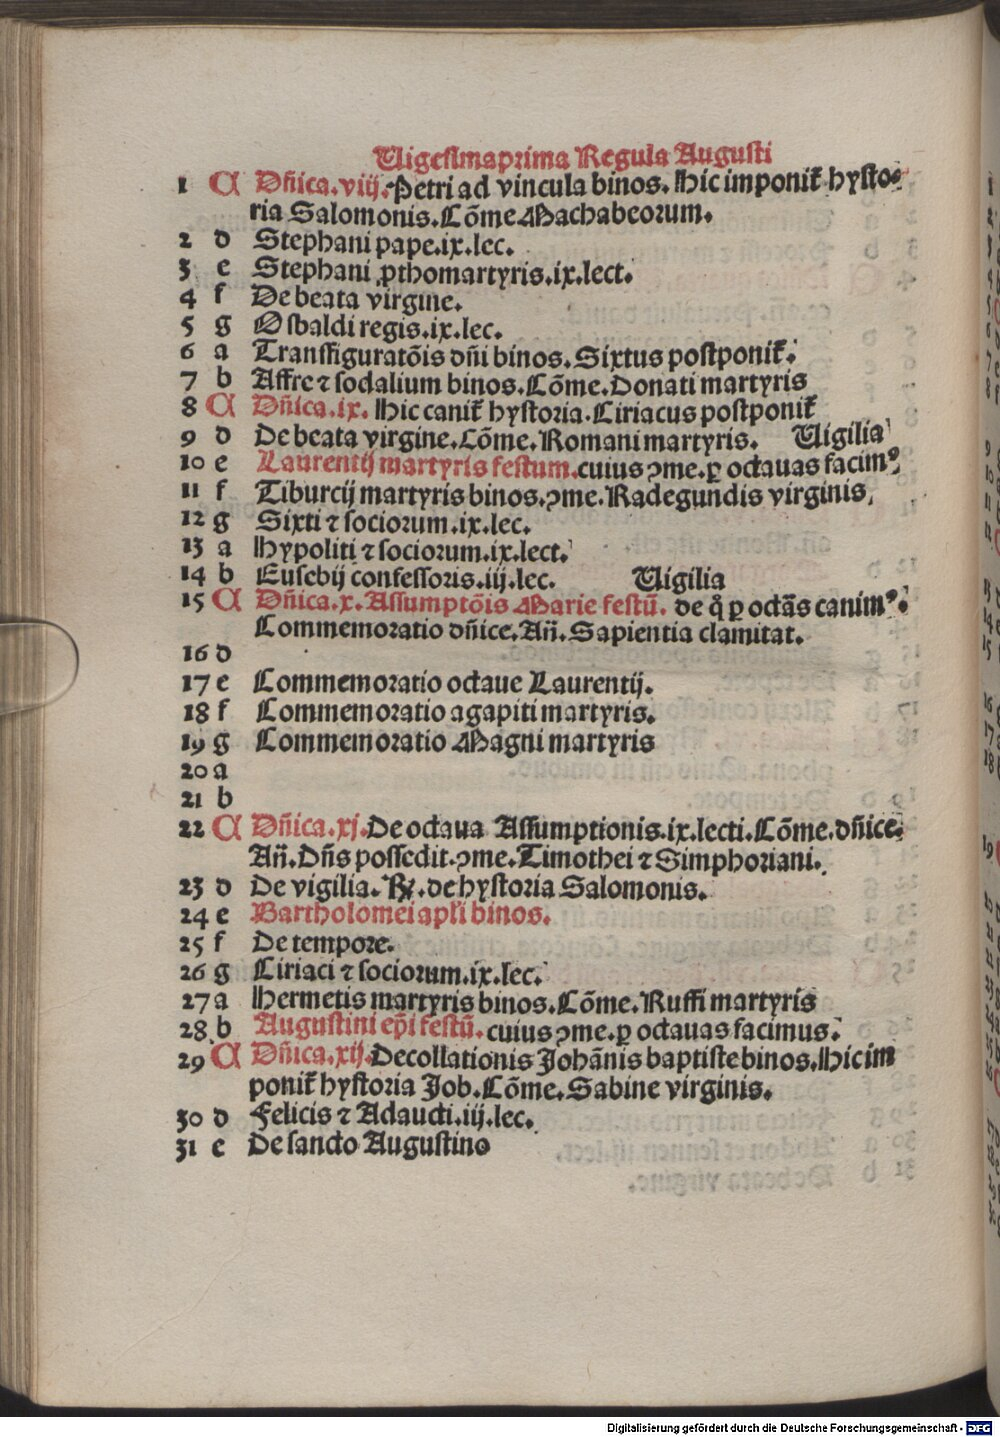 Uigesimaprima Regula Augusti
1 C Dñica.viij. Petri ad vincula binos. Hic imponit̃ hysto-
ria Salomonis. Cõme Machabeorum.
2 d Stephani pape.ix.lec.
3 e Stephani ꝓthomartyris.ix.lect.
4 f De beata virgine.
5 g Osbaldi regis.ix.lec.
6 a Transfiguratõis dñi binos. Sixtus postponit̃.
7 b Affre ⁊ sodalium binos. Cõme. Donati martyris
8 C Dñica.ix. Hic canit̃ hystoria. Ciriacus postponit̃
9 d De beata virgine. Cõme. Romani martyris. Uigilia
10 e Laurentij martyris festum. cuius ꝯme. ꝑ octauas facimꝰ
11 f Tiburcij martyris binos. ꝯme. Radegundis virginis.
12 g Sixti ⁊ sociorum.ix.lec.
13 a Hypoliti ⁊ sociorum.ix.lect.
14 b Eusebij confessoris.iij.lec. Uigilia
15 C Dñica.x. Assumptõis Marie festũ. de q̊ ꝑ octãs canimꝰ.
Commemoratio dñice. Añ. Sapientia clamitat.
16 d
17 e Commemoratio octaue Laurentij.
18 f Commemoratio agapiti martyris.
19 g Commemoratio Magni martyris
20 a
21 b
22 C Dñica.xj. De octaua Assumptionis.ix.lecti. Cõme. dñice.
Añ. Dñs possedit. ꝯme. Timothei ⁊ Simphoriani.
23 d De vigilia. ℞. de hystoria Salomonis.
24 e Bartholomei apl̃i binos.
25 f De tempore.
26 g Ciriaci ⁊ sociorum.ix.lec.
27 a Hermetis martyris binos. Cõme. Ruffi martyris
28 b Augustini ep̃i festũ. cuius ꝯme. ꝑ octauas facimus.
29 C Dñica.xij. Decollationis Johãnis baptiste binos. Hic im
ponit̃ hystoria Job. Cõme. Sabine virginis.
30 d Felicis ⁊ Adaucti.iij.lec.
31 e De sancto Augustino
Digitalisierung gefördert durch die Deutsche Forschungsgemeinschaft - DFG